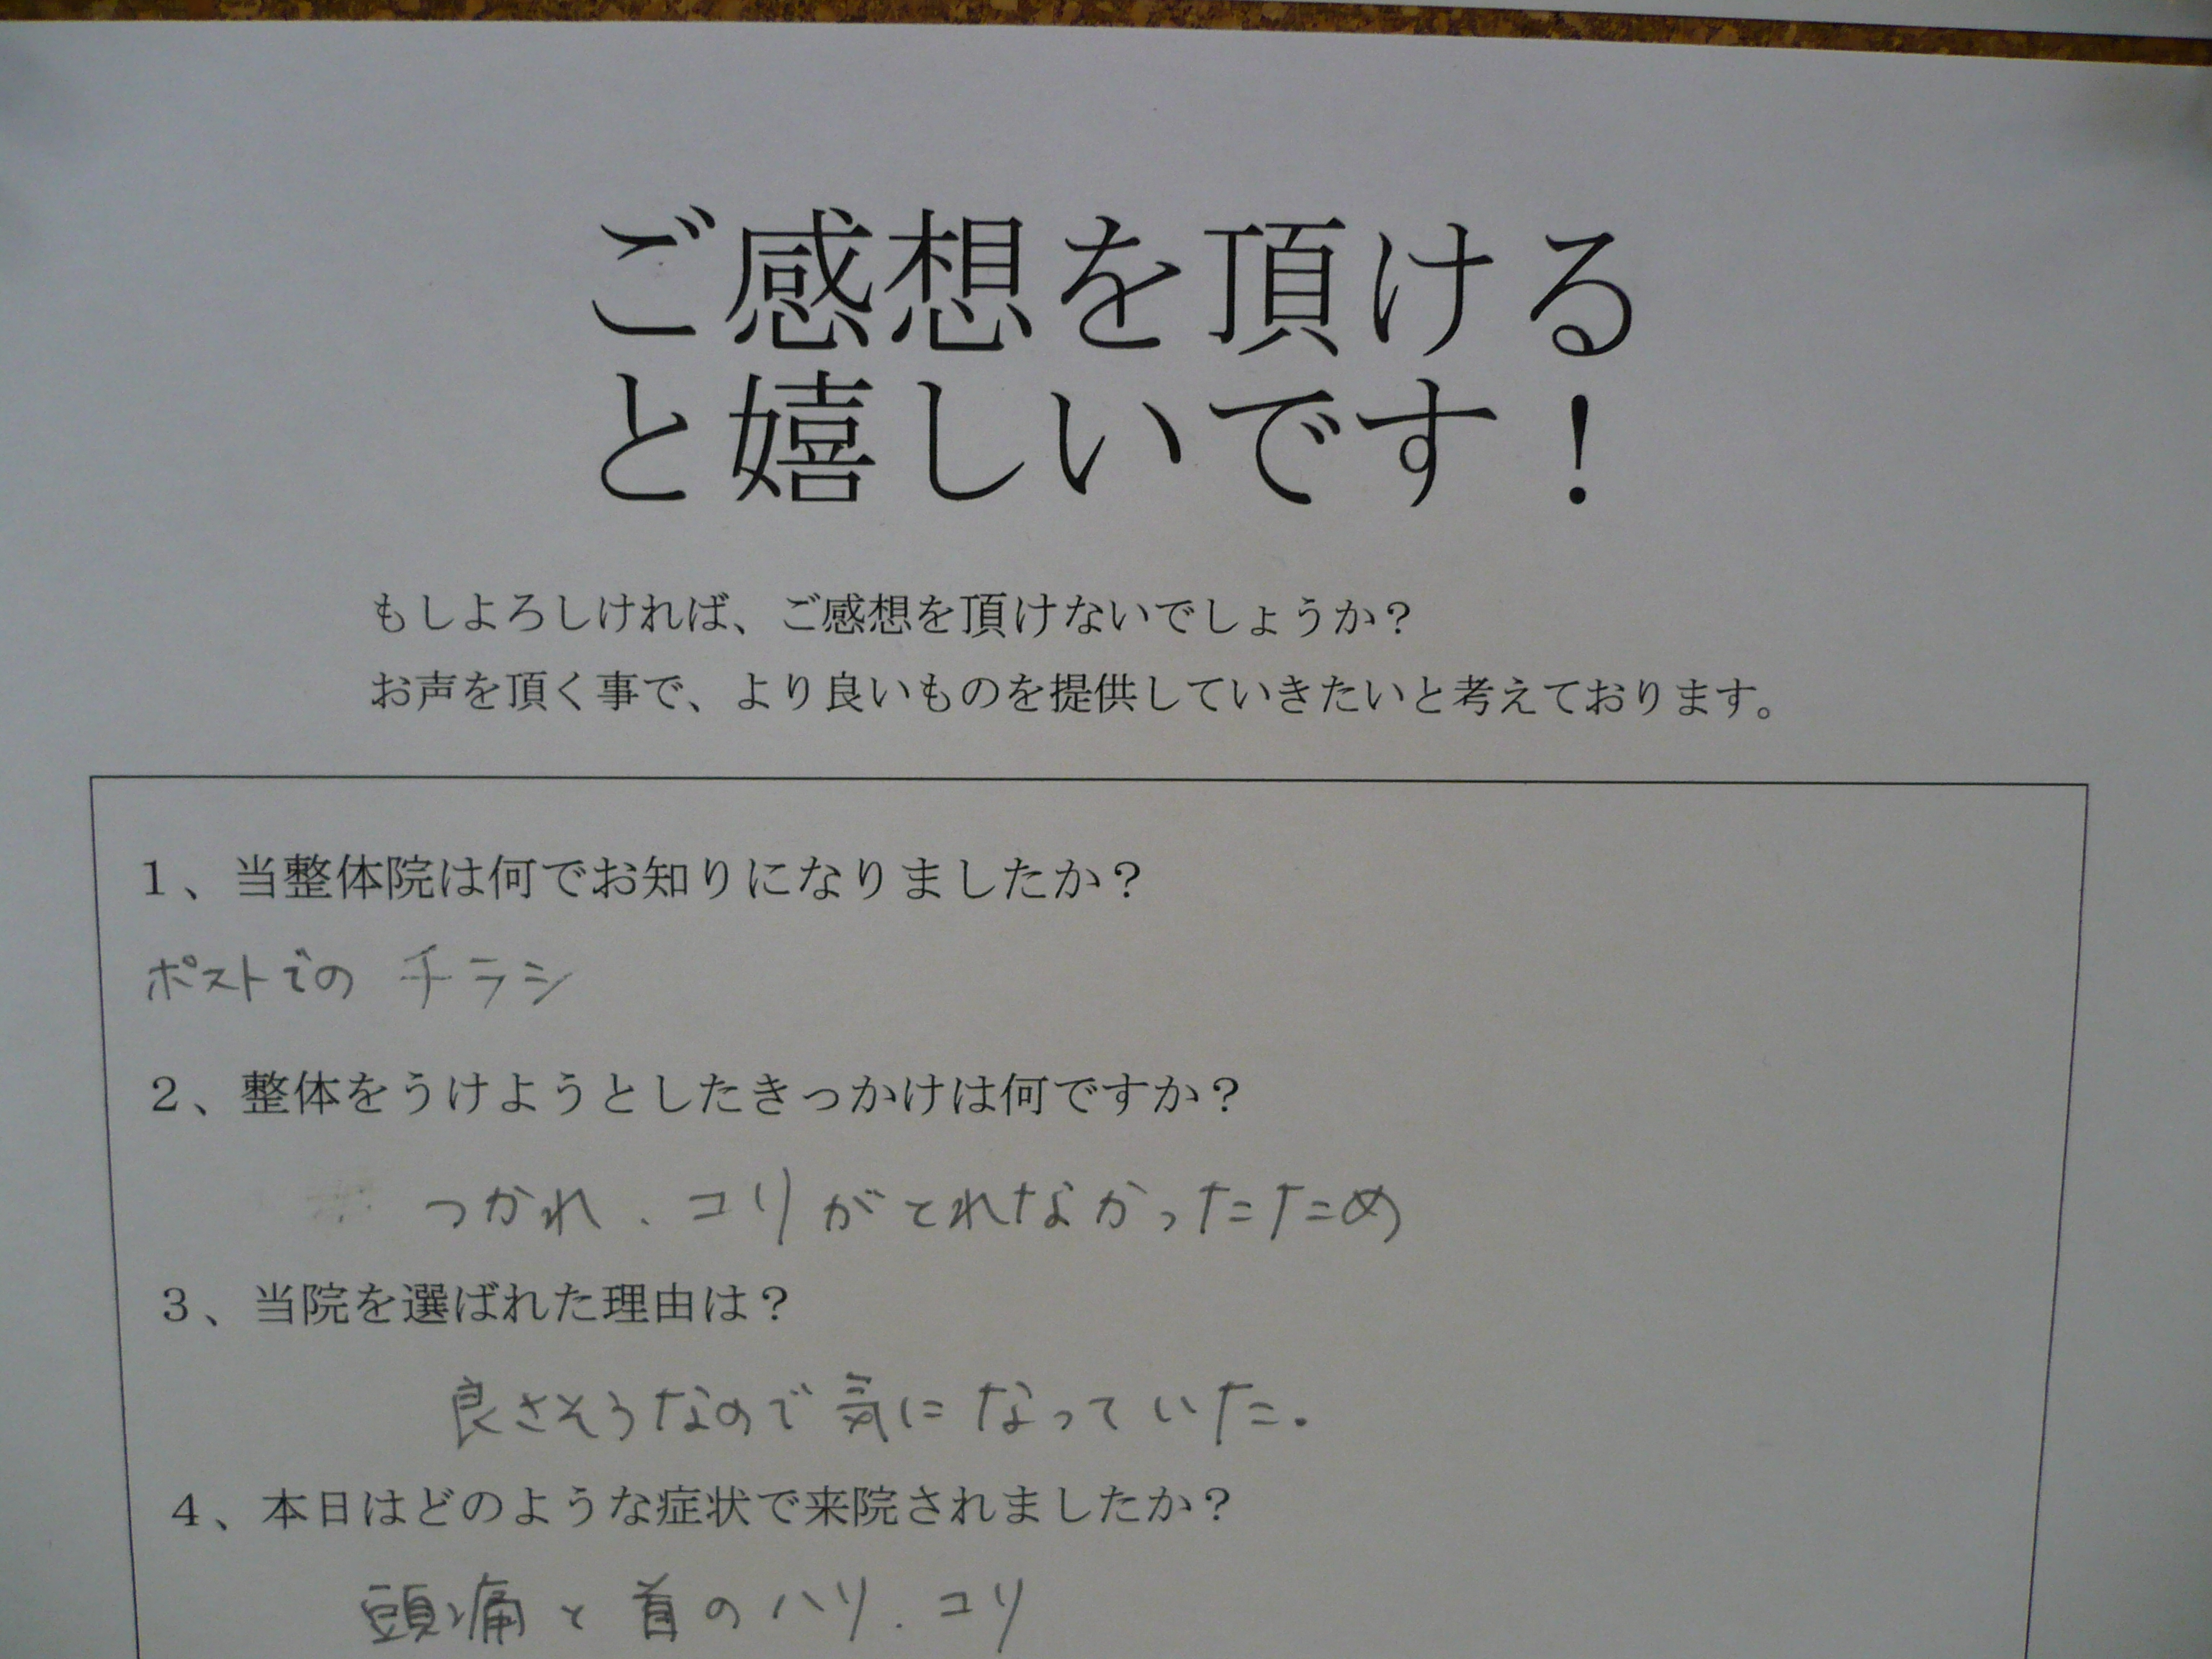 ご感想を頂ける
と嬉しいです！
もしよろしければ、ご感想を頂けないでしょうか？
お声を頂く事で、より良いものを提供していきたいと考えております。
１、当整体院は何でお知りになりましたか？
ポストでの チラシ
２、整体をうけようとしたきっかけは何ですか？
つかれ、コリがとれなかったため
３、当院を選ばれた理由は？
良さそうなので気になっていた。
４、本日はどのような症状で来院されましたか？
頭痛と首のハリ、コリ